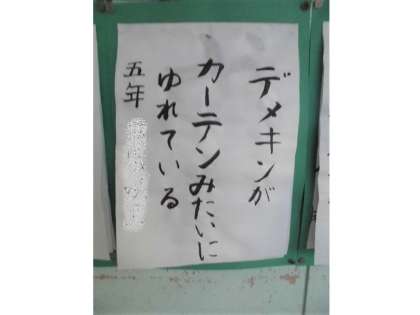 デメキンが
カーテンみたいに
ゆれている
五年